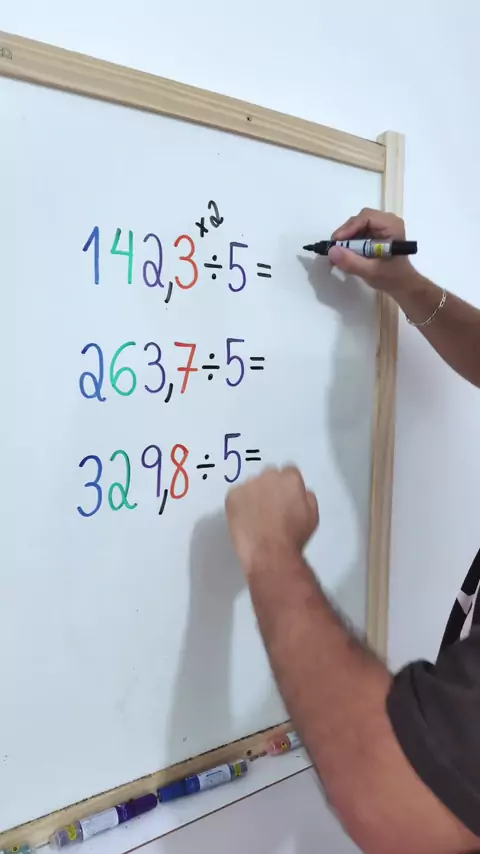 ×2
142,3÷5=
263,7÷5=
329,8÷5=